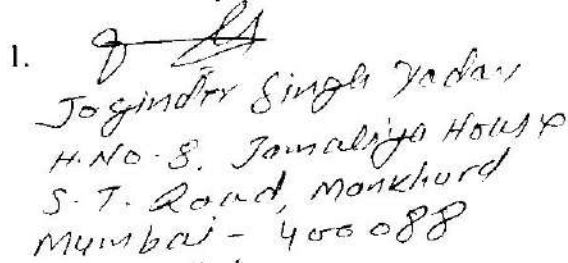 1.
Joginder Singh Yadav
H.No. 8, Jamaliya House
S.T. Road, Mankhurd
Mumbai - 400088